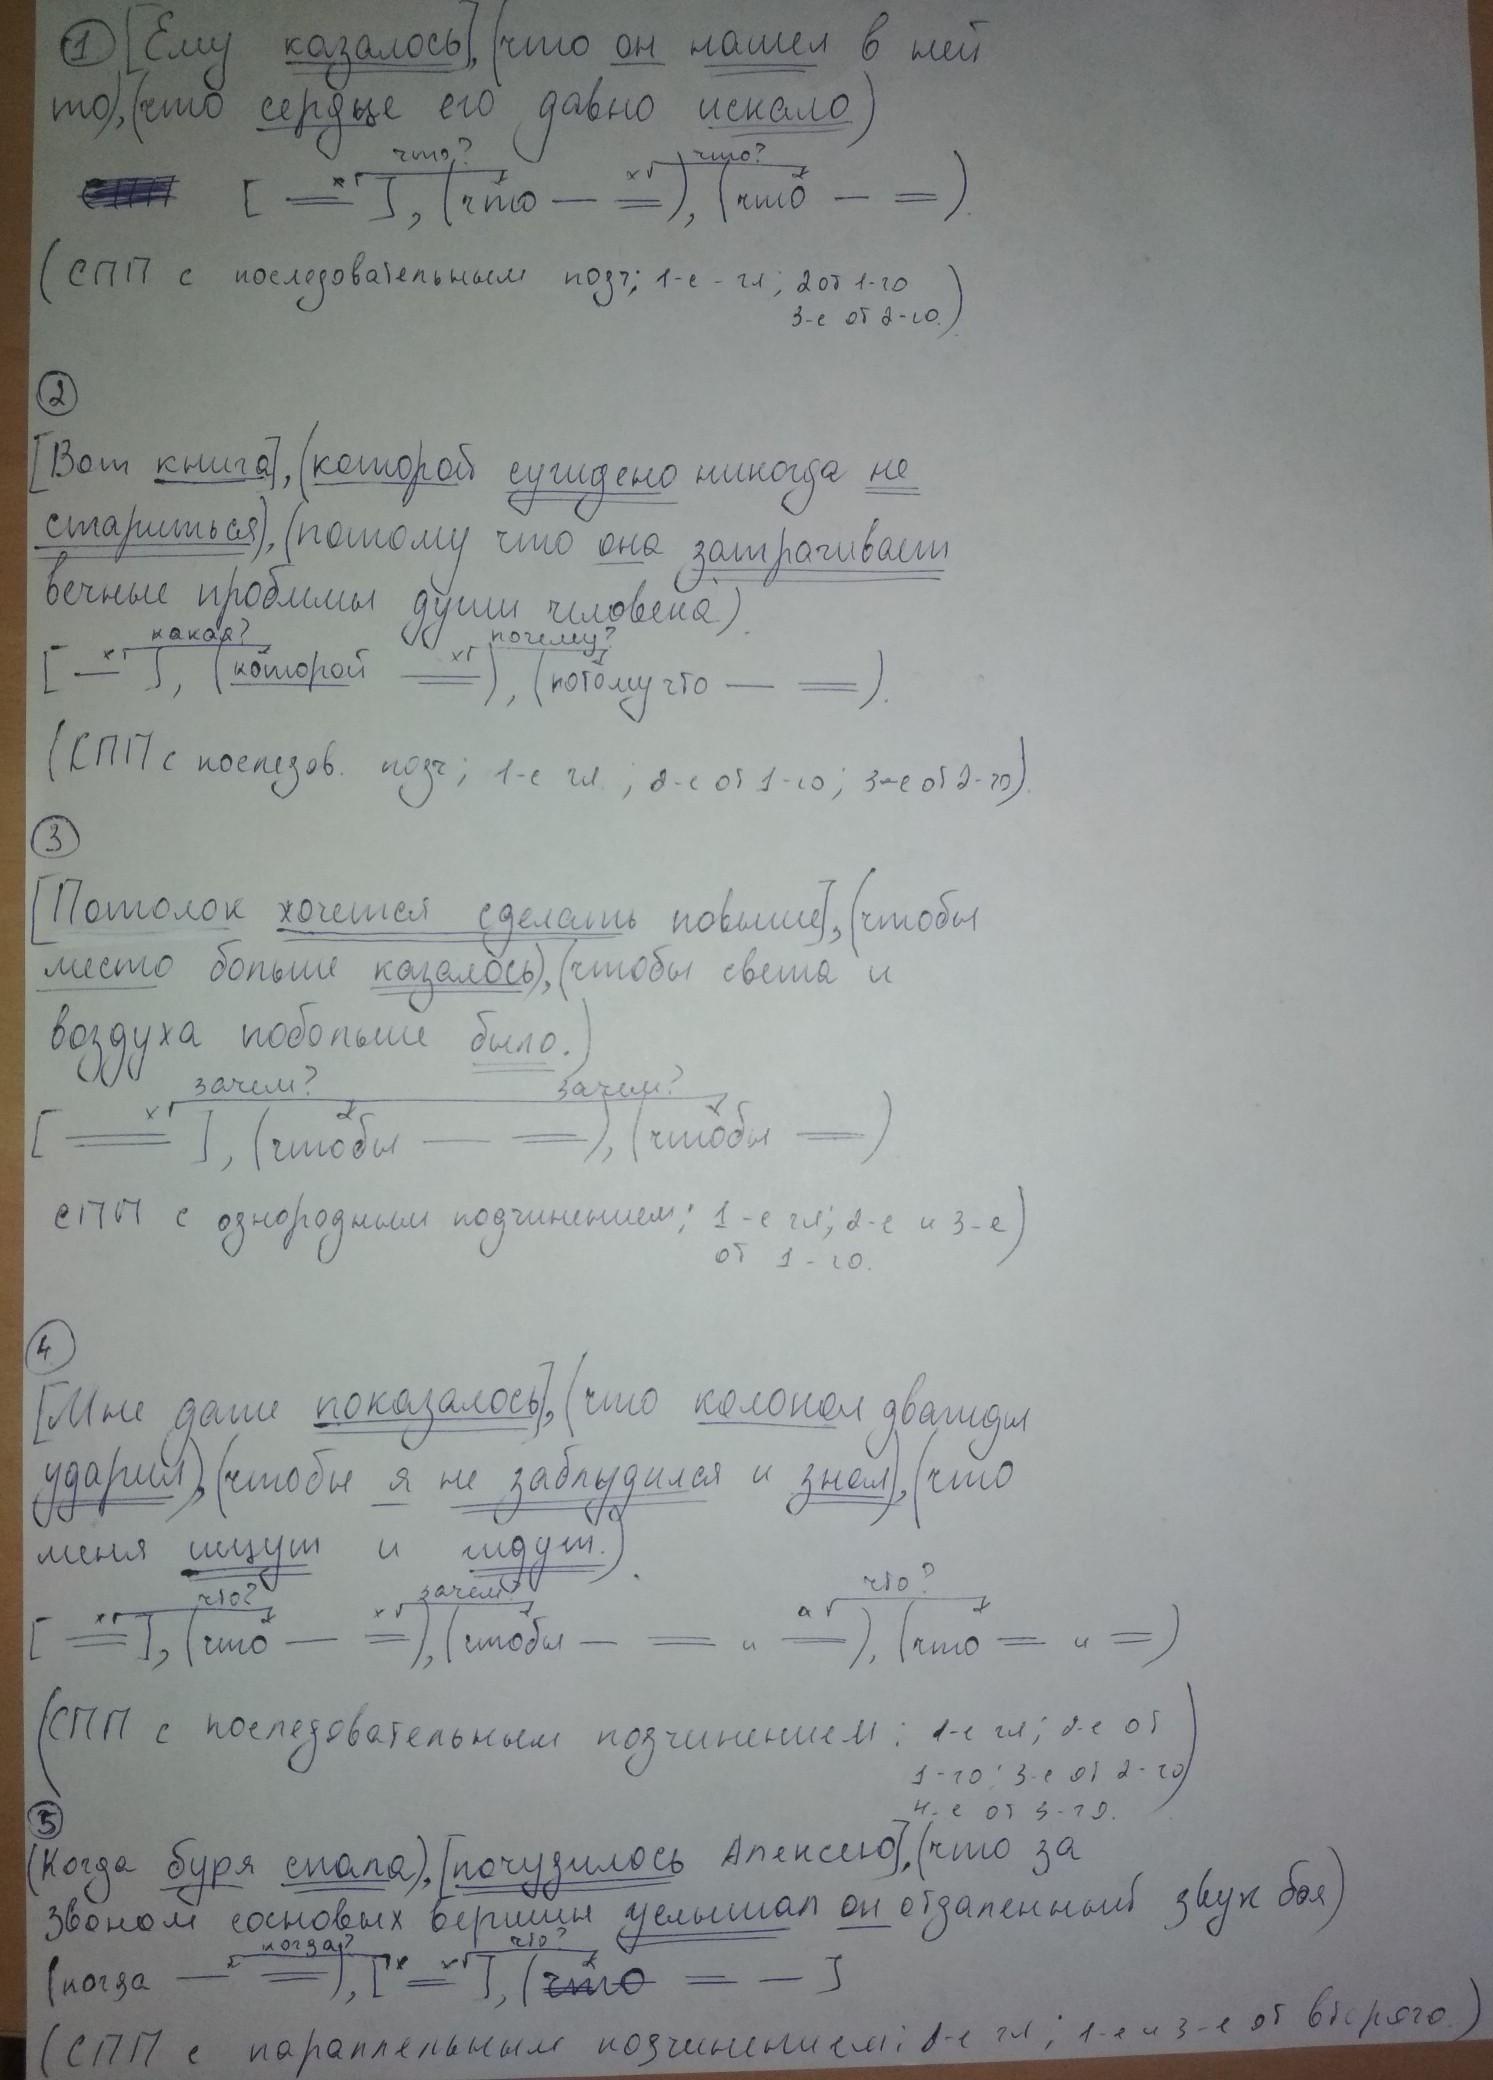 ① [Ему казалось], (что он нашел в ней
то), (что сердце его давно искало)
что? что?
[ ], (что ), (что ).
(СПП с последовательным подч; 1-е - гл; 2 от 1-го
3-е от 2-го.)
②
[Вот книга], (которой суждено никогда не
стариться), (потому что она затрагивает
вечные проблемы души человека).
какая? почему?
[ ], (которой ), (потому что ).
(СПП с последов. подч; 1-е гл.; 2-е от 1-го; 3-е от 2-го).
③
[Потолок хочется сделать повыше], (чтобы
место больше казалось), (чтобы света и
воздуха побольше было.)
зачем? зачем?
[ ], (чтобы ), (чтобы )
СПП с однородным подчинением; 1-е гл; 2-е и 3-е)
от 1-го.
④
[Мне даже показалось], (что колокол дважды
ударил), (чтобы я не заблудился и знал), (что
меня ищут и ждут.).
что? зачем? что?
[ ], (что ), (чтобы и ), (что и )
(СПП с последовательным подчинением: 1-е гл; 2-е от
1-го; 3-е от 2-го)
4-е от 3-го.
⑤
(Когда буря спала), [почудилось Алексею], (что за
звоном сосновых вершин услышал он отдаленный звук боя)
когда? что?
(когда ), [ ], (что ]
(СПП с параллельным подчинением; 2-е гл; 1-е и 3-е от второго.)